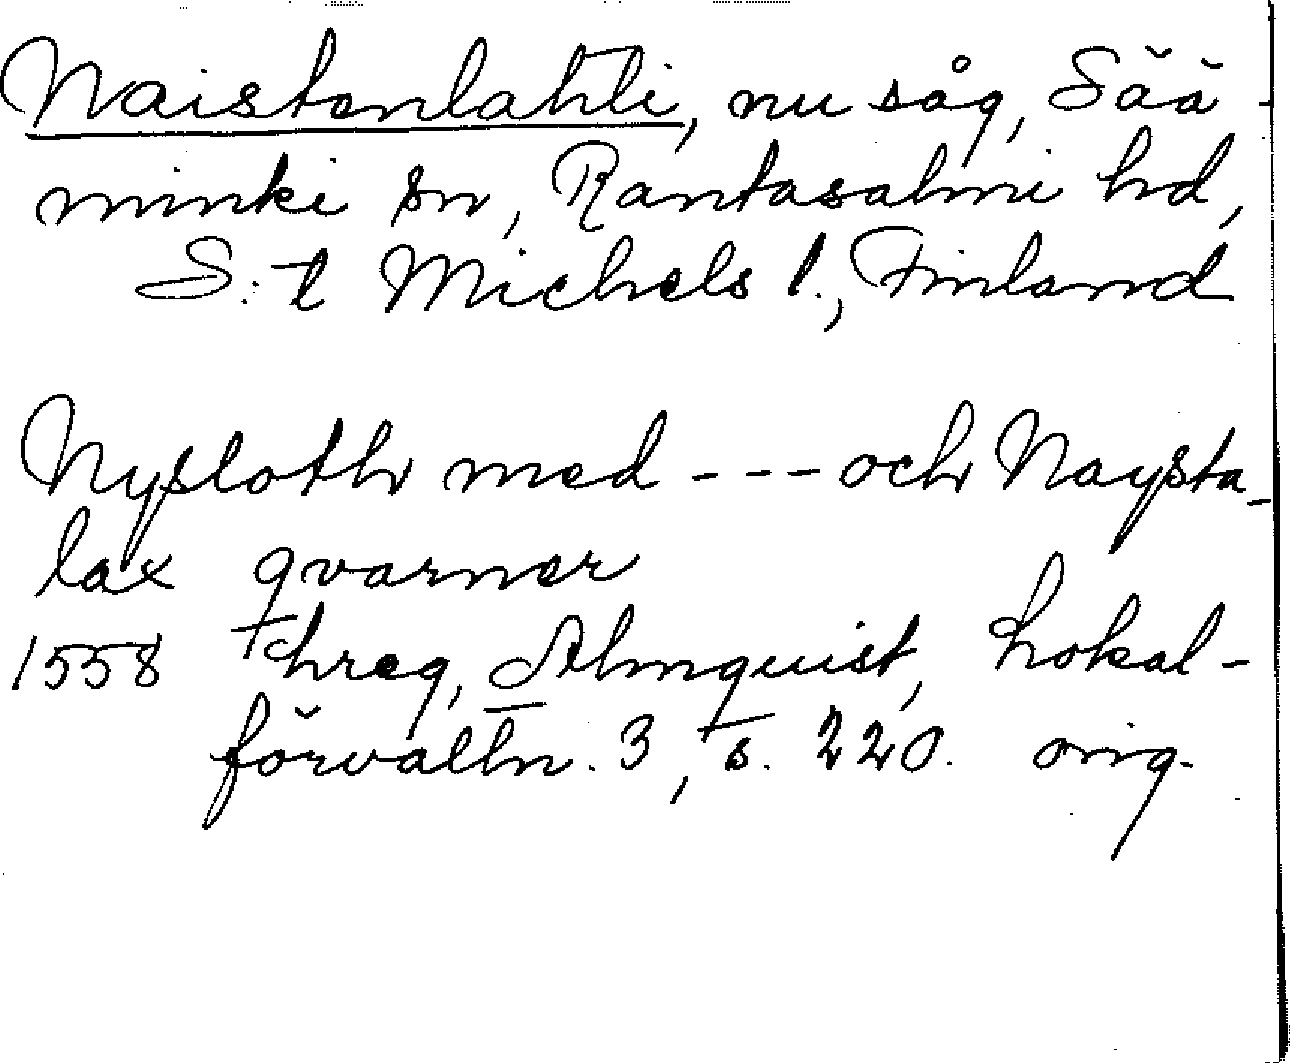 Naistenlahti, nu såg, Sää-
minki sn, Rantasalmi hd,
S:t Michels l., Finland
Nysloth med --- och Naysta-
lax qvarner
1558 Fhreg, Almquist, Lokal-
förvaltn. 3, s. 220. orig.